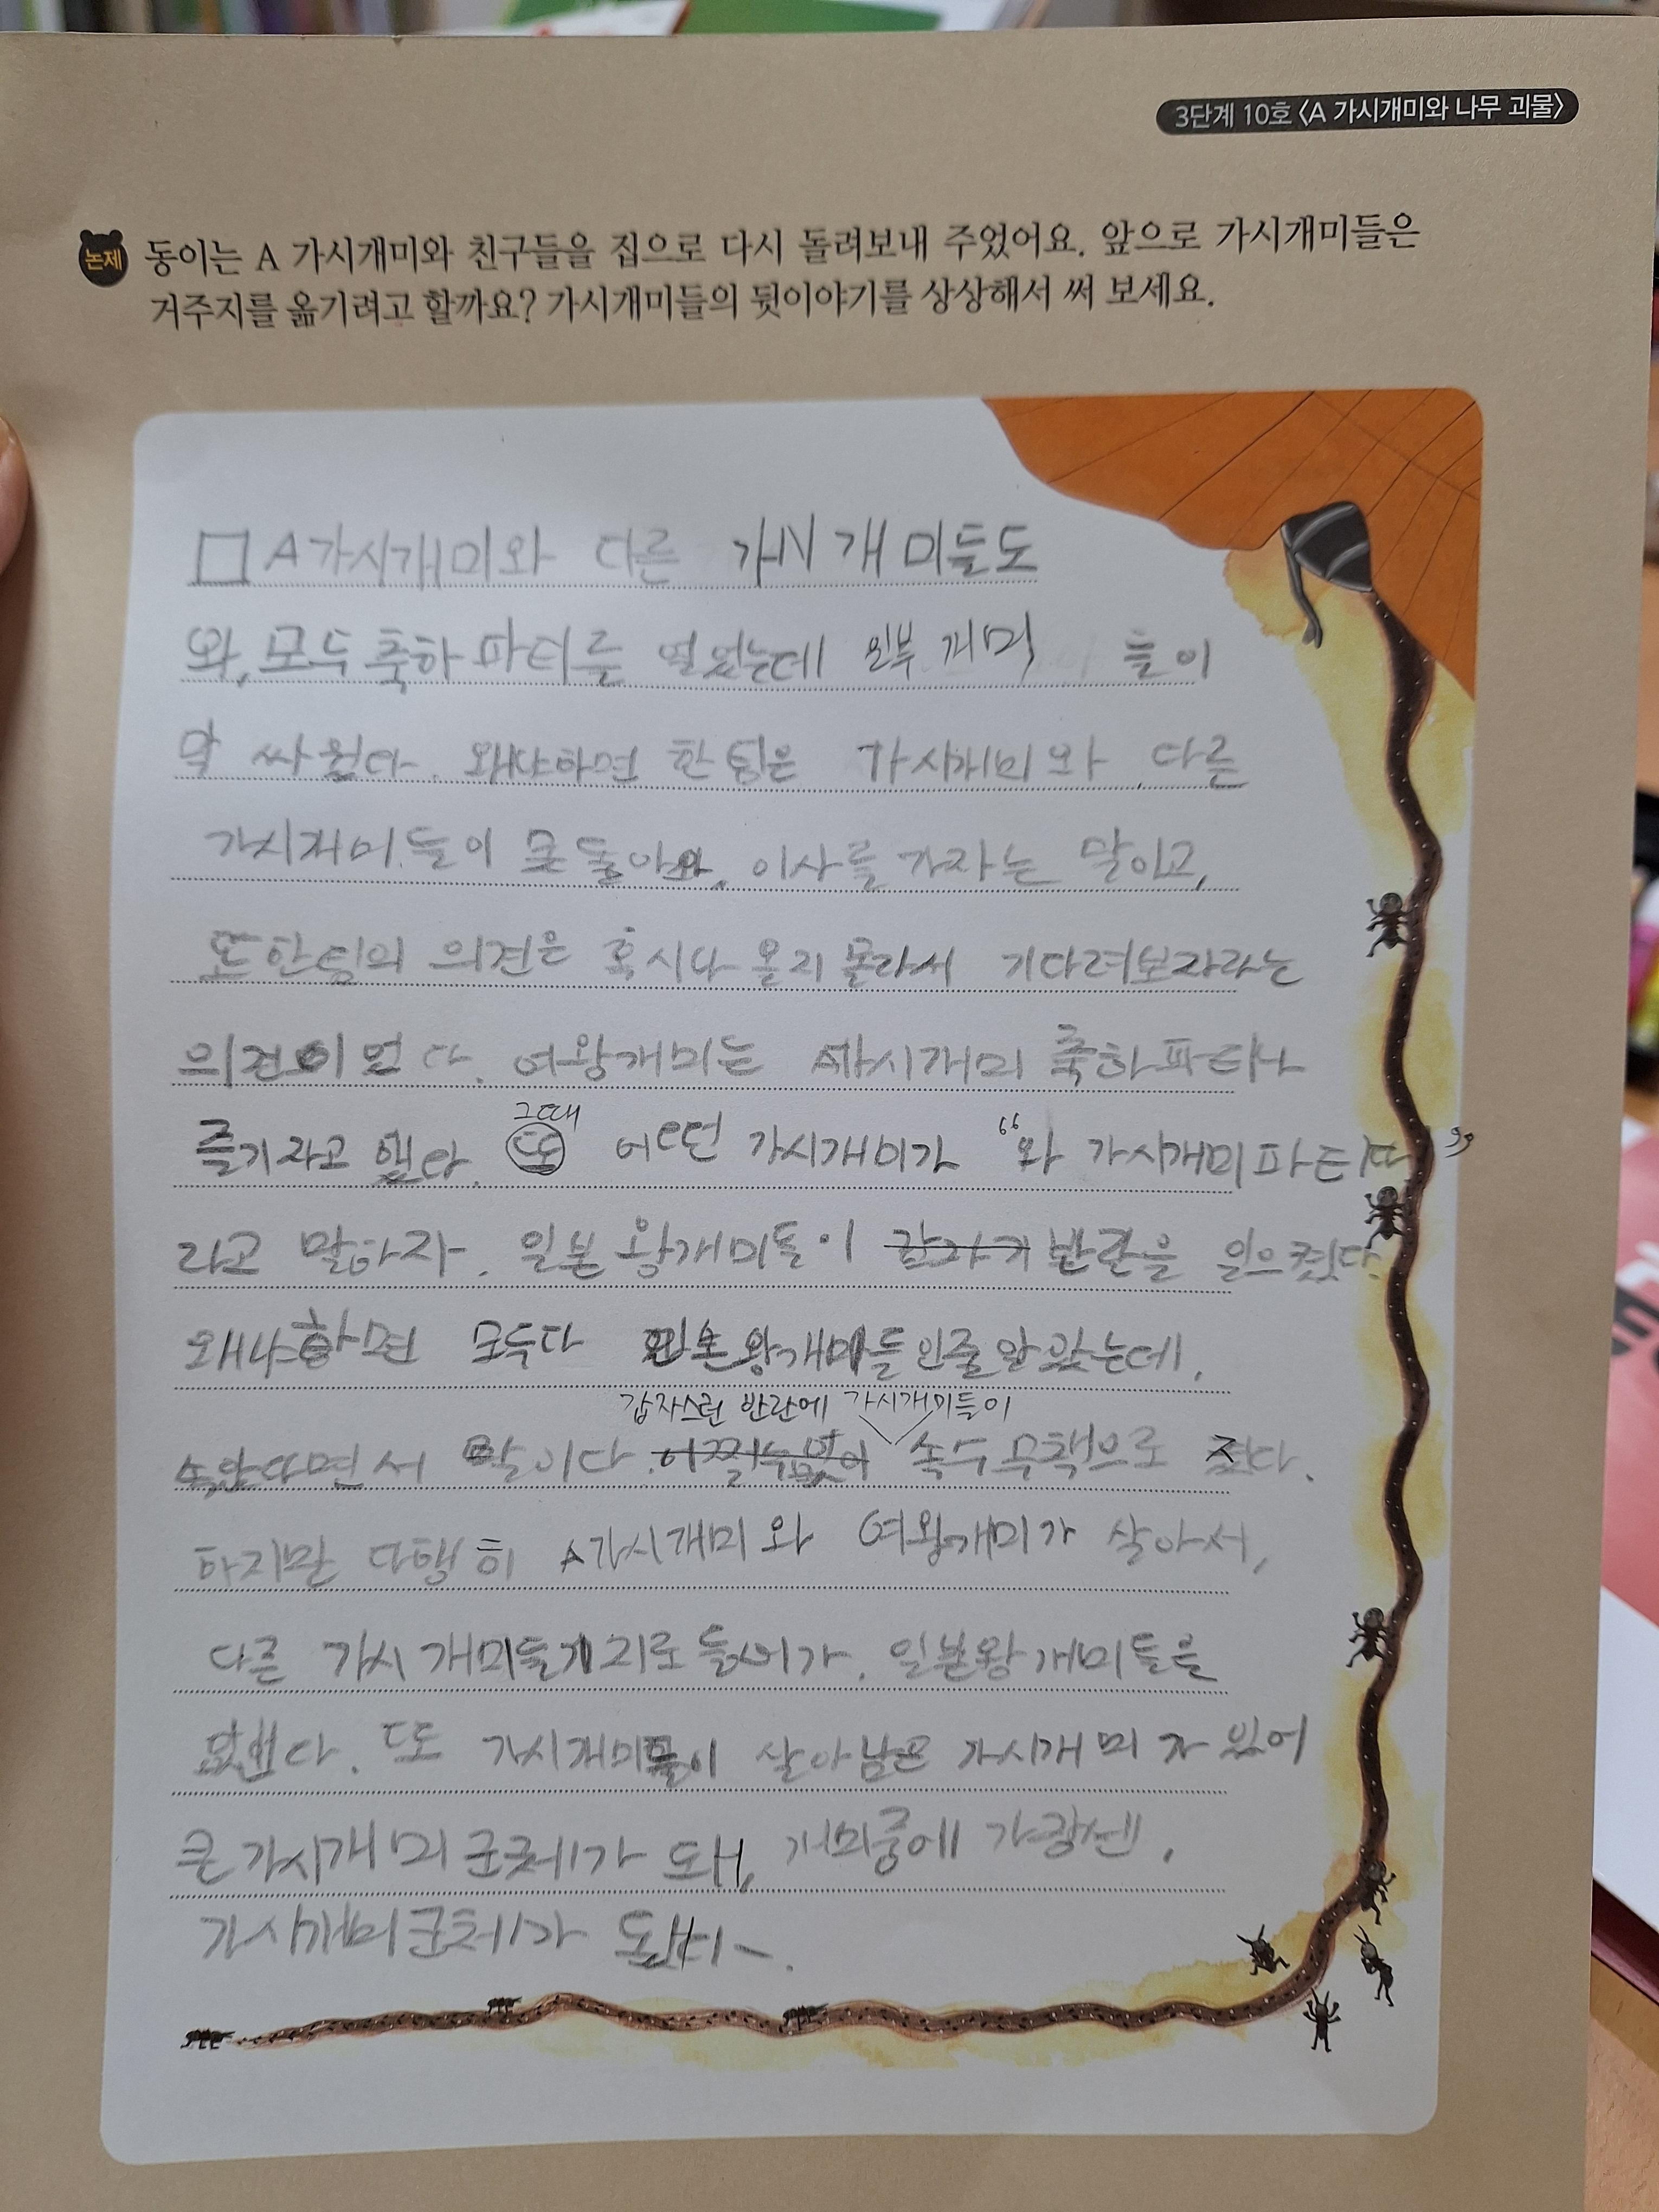 3단계 10호 〈A 가시개미와 나무 괴물〉
논제 동이는 A 가시개미와 친구들을 집으로 다시 돌려보내 주었어요. 앞으로 가시개미들은
거주지를 옮기려고 할까요? 가시개미들의 뒷이야기를 상상해서 써 보세요.
A가시개미와 다른 가시개미들도
와, 모두 축하 파티를 열었는데 일부 개미 들이
막 싸웠다. 왜냐하면 한 팀은 가시개미와 다른
가시개미들이 못 돌아와, 이사를 가자는 말이고,
또 한팀의 의견은 혹시나 올지 몰라서 기다려보자라는
의견이었다. 여왕개미는 A가시개미 축하파티나
즐기자고 했다. 그때 어떤 가시개미가 "와 가시개미파티다"
라고 말하자. 일본왕개미들이 반란을 일으켰다.
왜냐하면 모두다 일본왕개미들인줄 알았는데,
속았다면서 말이다. 갑자스런 반란에 가시개미들이 속수무책으로 졌다.
하지만 다행히 A가시개미와 여왕개미가 살아서,
다른 가시개미들기지로 들어가. 일본왕개미들을
또 가시개미들이 살아남은 가시개미 자 있어
큰 가시개미 군체가 돼, 개미중에 가장쎈,
가시개미군체가